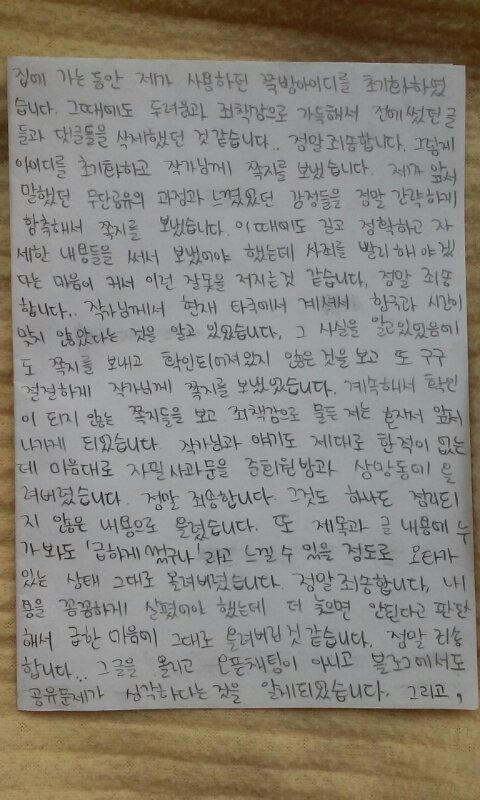 집에 가는동안 제가 사용하던 쪽방아이디를 초기화하였
습니다. 그때에도 두려움과 죄책감으로 가득해서 전에썼던글
들과 댓글들을 삭제했던 것같습니다.. 정말죄송합니다. 그렇게
아이디를 초기화하고 작가님께 쪽지를 보냈습니다. 제가 앞서
말했던 무단공유의 과정과 느꼈었던 감정들을 정말 간략하게
함축해서 쪽지를 보냈습니다. 이때에도 길고 정확하고 자
세한 내용들을 써서 보냈어야 했는데 사죄를 빨리해야겠
다는 마음이 커서 이런 잘못을 저지른것 같습니다. 정말 죄송
합니다.. 작가님께서 현재 타국에서 계셔서 한국과 시간이
맞지 않았다는 것을 알고 있었습니다. 그 사실을 알고있었음에
도 쪽지를 보내고 확인되어져있지 않은것을 보고 또 구구
절절하게 작가님께 쪽지를 보냈었습니다. 계속해서 확인
이 되지 않는 쪽지들을 보고 죄책감으로 물든 저는 혼자서 앞서
나가게 되었습니다. 작가님과 얘기도 제대로 한적이 없는
데 마음대로 자필사과문을 중회원방과 상망동에 올
려버렸습니다. 정말 죄송합니다. 그것도 하나도 정리되
지 않은 내용으로 올렸습니다. 또 제목과 글 내용에 누
가봐도 '급하게 썼구나' 라고 느낄 수 있을 정도로 오타가
있는 상태 그대로 올려버렸습니다. 정말죄송합니다. 내
용을 꼼꼼하게 살폈어야 했는데 더 늦으면 안된다고 판단
해서 급한 마음에 그대로 올려버린것 같습니다. 정말 죄송
합니다.. 그글을 올리고 오픈채팅이 아니고 블로그에서도
공유문제가 심각하다는 것을 알게되었습니다. 그리고,